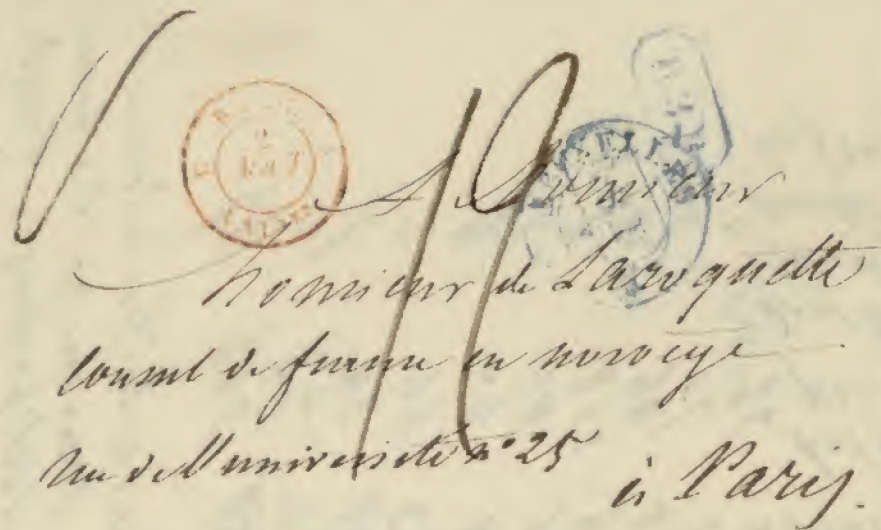 A Monsieur
Monsieur de Laroquette
Consul de france en norvege
rue de l'université n° 25
à Paris.